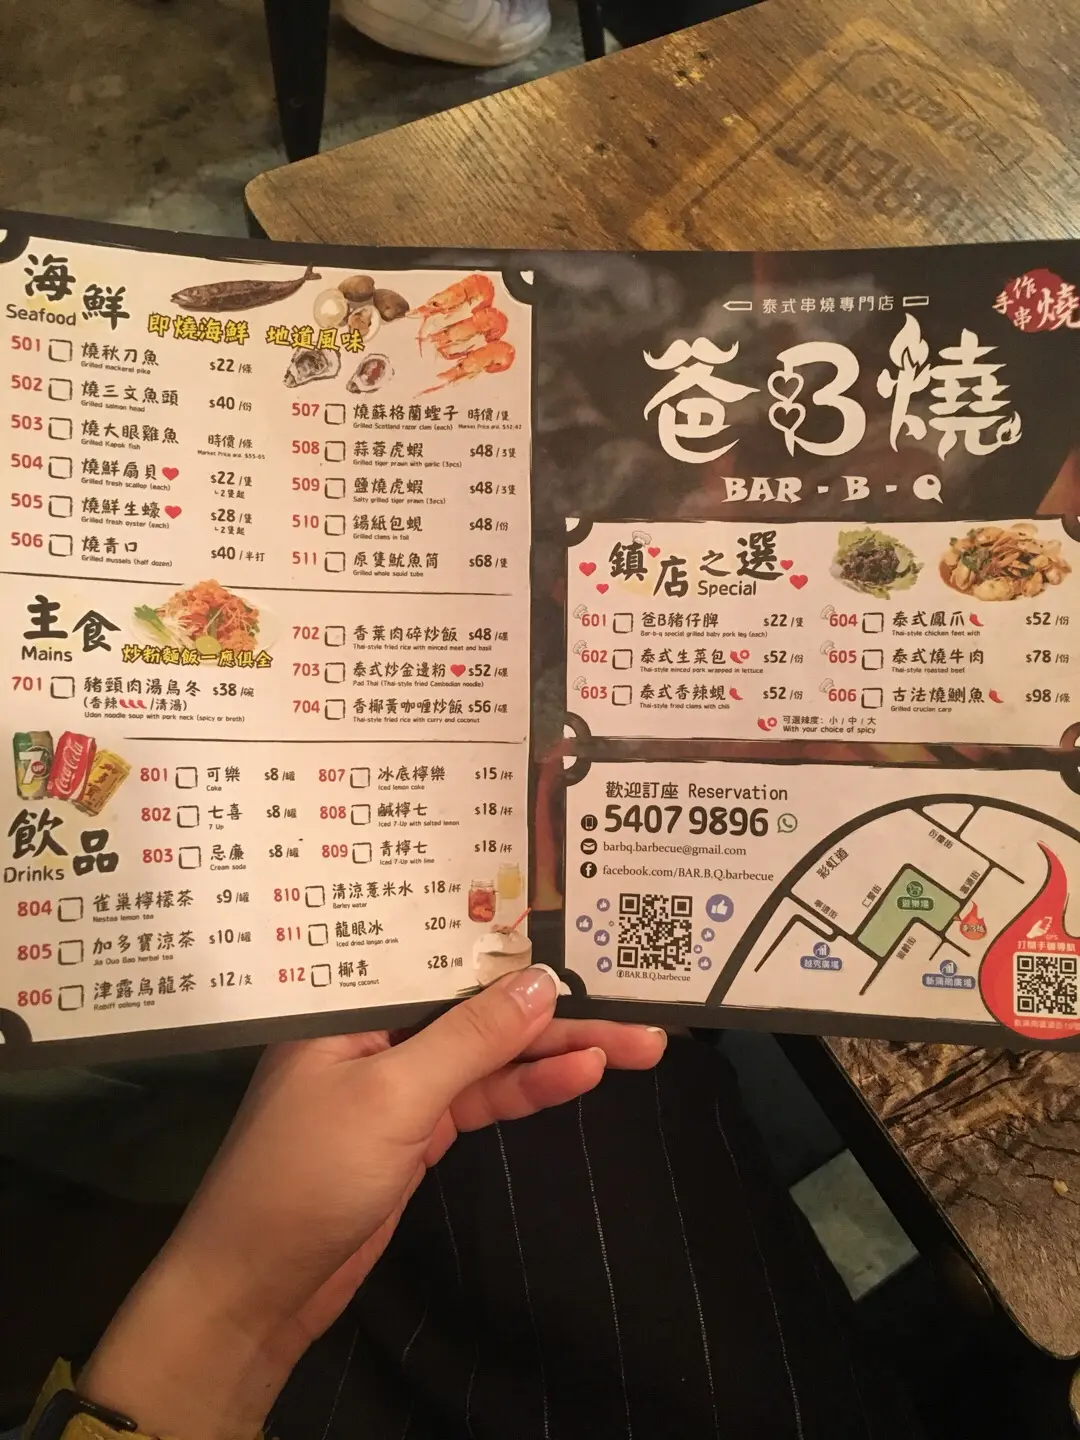 海鮮
Seafood
即燒海鮮 地道風味
501 燒秋刀魚 $22/條
Grilled mackerel pike
502 燒三文魚頭 $40/份
Grilled salmon head
503 燒大眼雞魚 時價/條
Grilled Kapok fish Market Price aro. $55-65
504 燒鮮扇貝 $22/隻
Grilled fresh scallop (each) 2隻起
505 燒鮮生蠔 $28/隻
Grilled fresh oyster (each) 2隻起
506 燒青口 $40/半打
Grilled mussels (half dozen)
507 燒蘇格蘭蟶子 時價/隻
Grilled Scotland razor clam (each) Market Price aro. $32-42
508 蒜蓉虎蝦 $48/3隻
Grilled tiger prawn with garlic (3pcs)
509 鹽燒虎蝦 $48/3隻
Salty grilled tiger prawn (3pcs)
510 錫紙包蜆 $48/份
Grilled clams in foil
511 原隻魷魚筒 $68/隻
Grilled whole squid tube
主食
Mains
炒粉麵飯一應俱全
701 豬頸肉湯烏冬 $38/碗
(香辣/清湯)
Udon noodle soup with pork neck (spicy or broth)
702 香葉肉碎炒飯 $48/碟
Thai-style fried rice with minced meat and basil
703 泰式炒金邊粉 $52/碟
Pad Thai (Thai-style fried Cambodian noodle)
704 香椰黃咖喱炒飯 $56/碟
Thai-style fried rice with curry and coconut
飲品
Drinks
801 可樂 $8/罐
Coke
802 七喜 $8/罐
7 Up
803 忌廉 $8/罐
Cream soda
804 雀巢檸檬茶 $9/罐
Nestea lemon tea
805 加多寶涼茶 $10/罐
Jia Duo Bao herbal tea
806 津露烏龍茶 $12/支
oolong tea
807 冰底檸樂 $15/杯
Iced lemon coke
808 鹹檸七 $18/杯
Iced 7-Up with salted lemon
809 青檸七 $18/杯
Iced 7-Up with lime
810 清涼薏米水 $18/杯
Barley water
811 龍眼冰 $20/杯
Iced dried longan drink
812 椰青 $28/個
Young coconut
泰式串燒專門店
手作串燒
爸B燒
BAR-B-Q
鎮店之選
Special
601 爸B豬仔髀 $22/隻
Bar-b-q special grilled baby pork leg (each)
602 泰式生菜包 $52/份
Thai-style minced pork wrapped in lettuce
603 泰式香辣蜆 $52/份
Thai-style fried clams with chili
604 泰式鳳爪 $52/份
Thai-style chicken feet with
605 泰式燒牛肉 $78/份
Thai-style roasted beef
606 古法燒鯽魚 $98/條
Grilled crucian carp
可選辣度: 小/中/大
With your choice of spicy
歡迎訂座 Reservation
5407 9896
barbq.barbecue@gmail.com
facebook.com/BAR.B.Q.barbecue
BAR.B.Q.barbecue
彩虹道
遊樂場
越秀廣場
GPS
打開手機導航
7UP
Coca-Cola